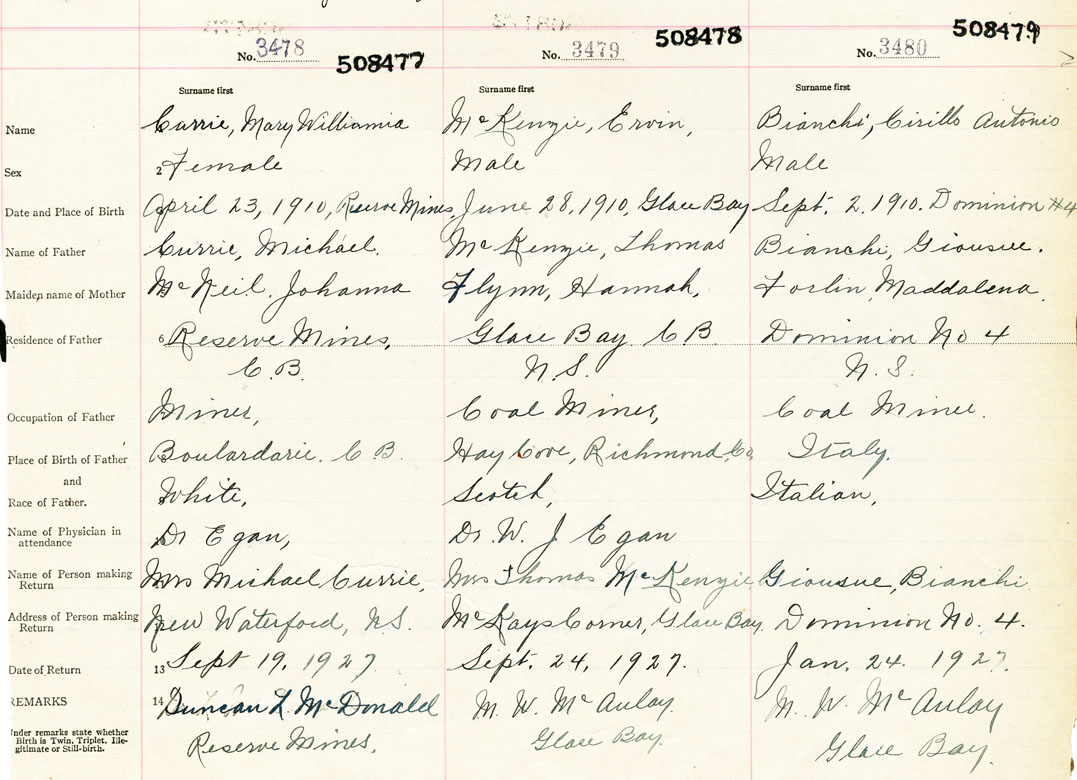 No. 3478 508477
No. 3479 508478
No. 3480 508479
Surname first Surname first Surname first
Name Currie, Mary Williamia McKenzie, Ervin, Bianchi, Cirillo Antonio
Sex 2 Female Male Male
Date and Place of Birth April 23, 1910, Reserve Mines, June 28, 1910, Glace Bay Sept. 2. 1910. Dominion #4
Name of Father Currie, Michael. McKenzie, Thomas Bianchi, Giousue.
Maiden name of Mother McNeil, Johanna Flynn, Hannah, Forlin, Maddalena.
Residence of Father 6 Reserve Mines, Glace Bay C B. Dominion No 4
C. B. N. S. N. S.
Occupation of Father Miner, Coal Miner, Coal Miner.
Place of Birth of Father Boulardarie. C B. Hay Cove, Richmond, Co Italy.
and
Race of Father. White, Scotch, Italian,
Name of Physician in attendance Dr Egan, Dr. W. J Egan
Name of Person making Return Mrs Michael Currie, Mrs Thomas McKenzie Giousue, Bianchi
Address of Person making Return New Waterford, N.S. McKays Corner, Glace Bay. Dominion No. 4.
Date of Return 13 Sept 19, 1927 Sept. 24, 1927. Jan. 24. 1927.
REMARKS 14 Duncan L. McDonald M. W. McAulay. M. W. McAulay
Under remarks state whether Birth is Twin, Triplet, Illegitimate or Still-birth. Reserve Mines, Glace Bay. Glace Bay.